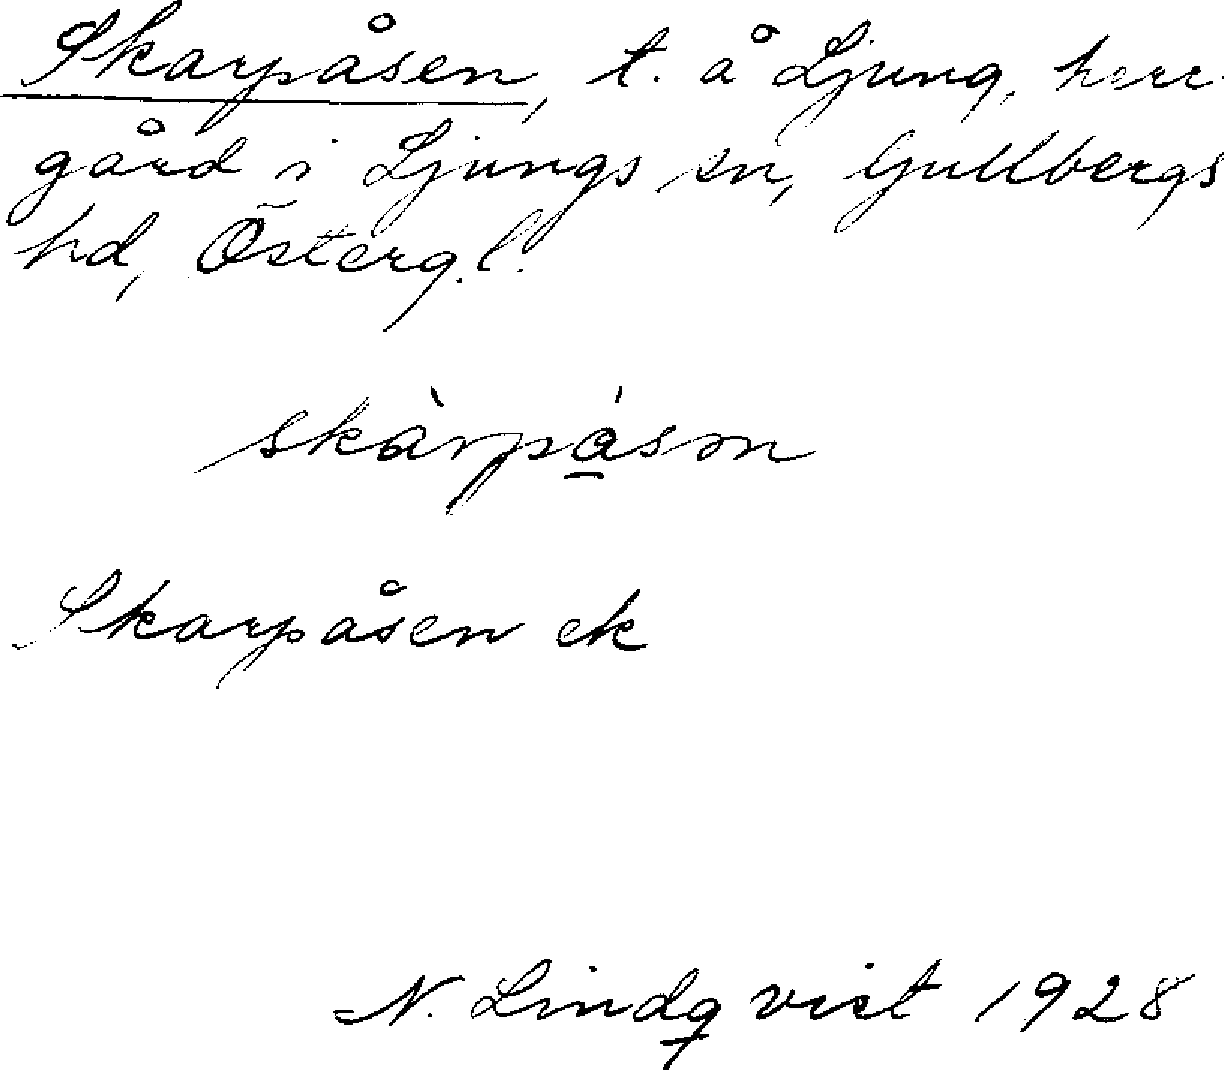 Skarpåsen, t. å Ljung, herr-
gård i Ljungs sn, Gullbergs
hd, Östergl.
skàrpásən
Skarpåsen ek
N. Lindqvist 1928